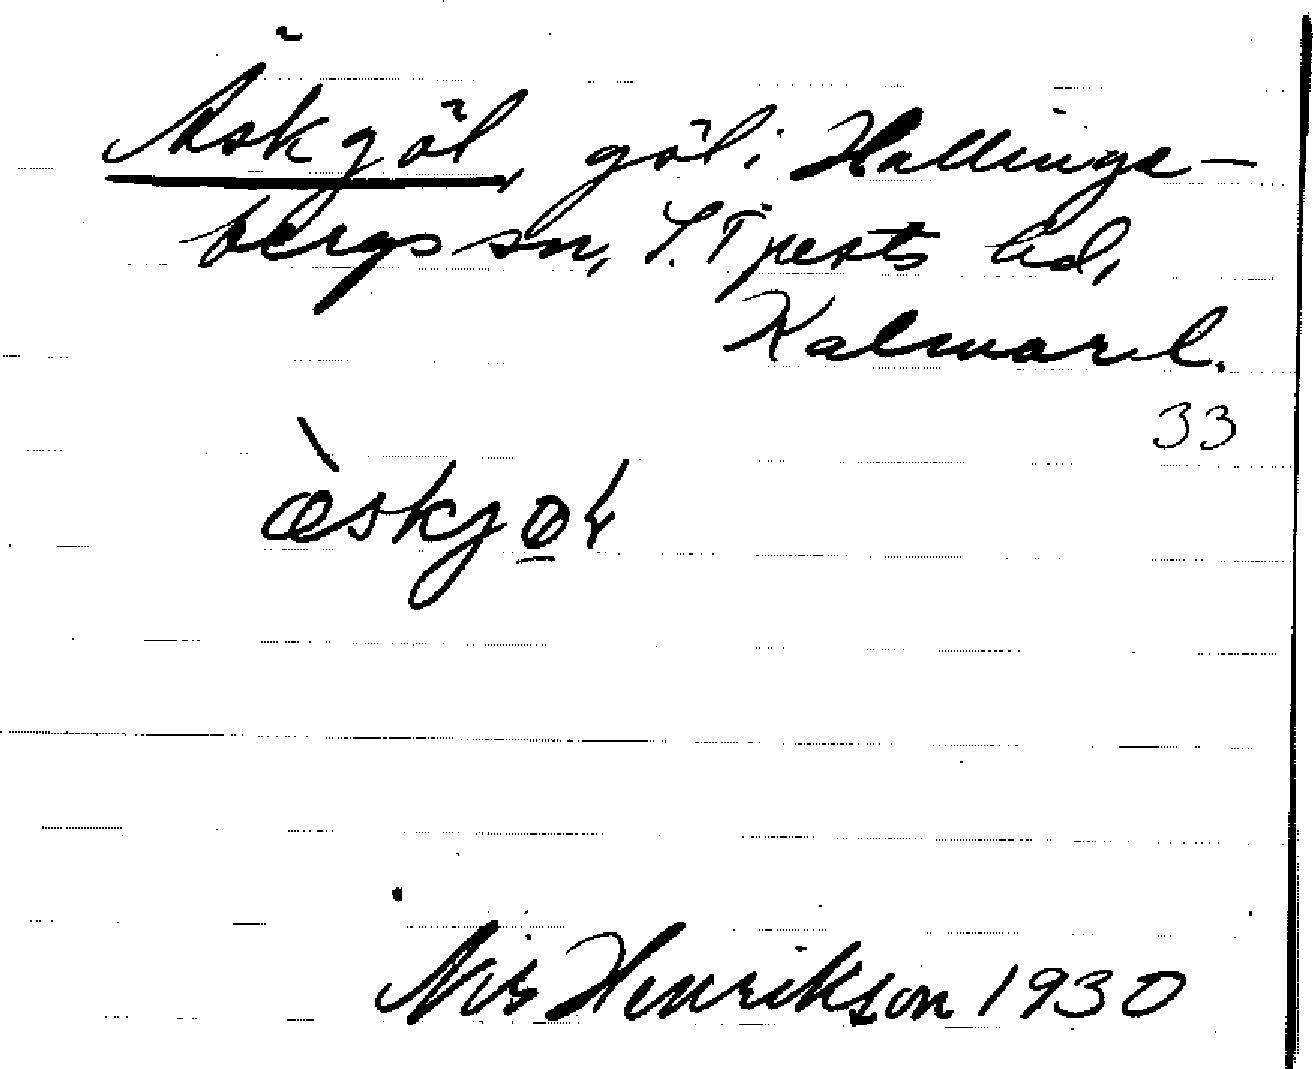 Äskgöl, göl i Hallings-
bergs sn, S. Tjusts hd,
Kalmar l.
33
æ̀skjøl
Nils Henrikson 1930